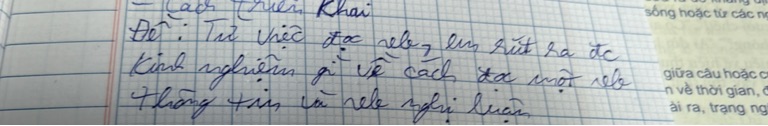 - Cách triển Khai
Đề: Từ việc đọc vbtt, em rút ra đc
Kinh nghiệm gì về cách đọc một vb
thông tin và vb nghị luận
sông hoặc từ các n
giữa câu hoặc c
n về thời gian,
ài ra, trạng ng